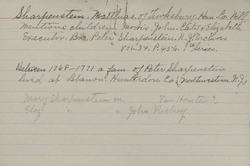 Sharpenstein, Matthias, of Tewksbury, Hun. Co. Will
mentions children, Morris, John, Peter & Elizabeth
Executor. Bro. Peter Sharpenstein. N.J. Archives
Vol. 34. P. 456. 1st Series.
Between 1768-1771 a fam. of Peter Sharpenstein
lived at Lebanon, Hunterdon Co. (Northwestern N.J.)
Mary Sharpenstein m. Van Horten?
Eliz " " John Richey